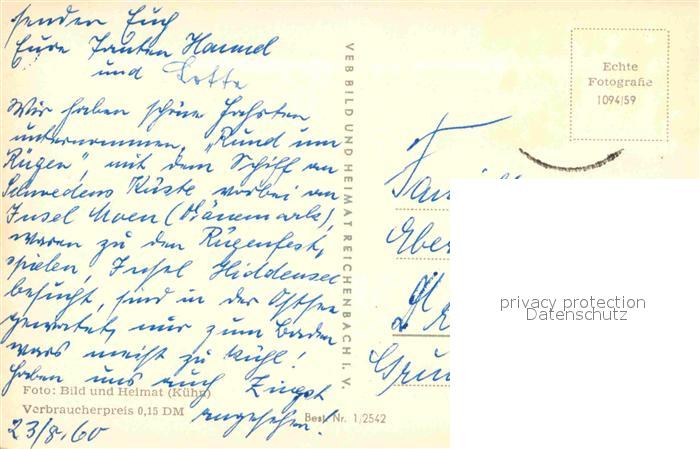 senden Euch
Eure Tanten Hannel
und Lotte
Wir haben schöne Fahrten
unternommen, "Rund um
Rügen", mit dem Schiff an
Schwedens Küste vorbei an
Insel Moen (Dänemark),
waren zu den Rügenfest-
spielen, Insel Hiddensee
besucht, sind in der Ostsee
gewatet, nur zum Baden
wars meist zu kühl!
Haben uns auch Zingst
angesehen!
23/8.60
Foto: Bild und Heimat (Kühn)
Verbraucherpreis 0,15 DM
Best. Nr. 1/2542
VEB BILD UND HEIMAT REICHENBACH I. V.
Echte
Fotografie
1094/59
privacy protection
Datenschutz